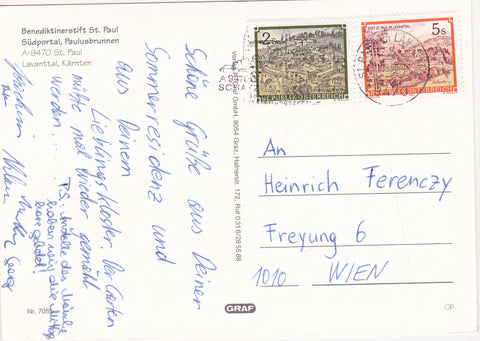 Benediktinerstift St. Paul
Südportal, Paulusbrunnen
A-9470 St. Paul
Lavanttal, Kärnten
Schöne Grüße aus Deiner
Sommerresidenz und
aus Deinem
Lieblingskloster. Der Garten
müßte mal wieder gemäht
werden....
P.S.: Anstelle der
haben wir die
Joachim
Verlag GRAF GmbH, 8054 Graz, Hafnerstr. 172, Ruf 0 316/28 55 88
2S
REPUBLIK ÖSTERREICH
5s
STIFT ST. PAUL IM LAVANTTAL
REPUBLIK ÖSTERREICH
An
Heinrich Ferenczy
Freyung 6
1010 WIEN
Nr. 7055
GRAF